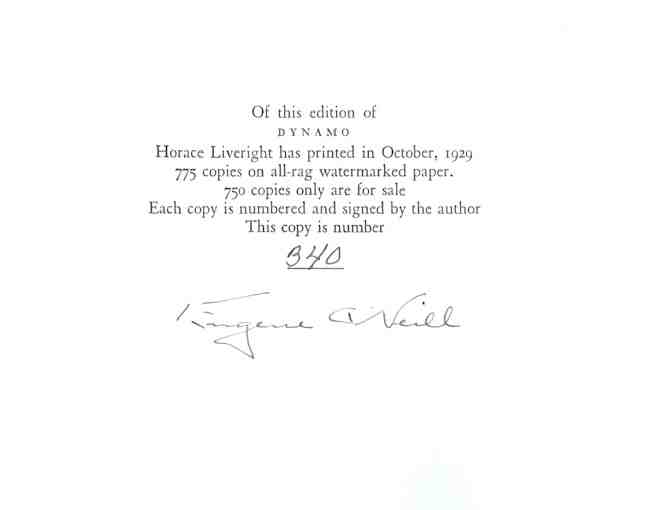 Of this edition of
DYNAMO
Horace Liveright has printed in October, 1929
775 copies on all-rag watermarked paper.
750 copies only are for sale
Each copy is numbered and signed by the author
This copy is number
340
Eugene O'Neill